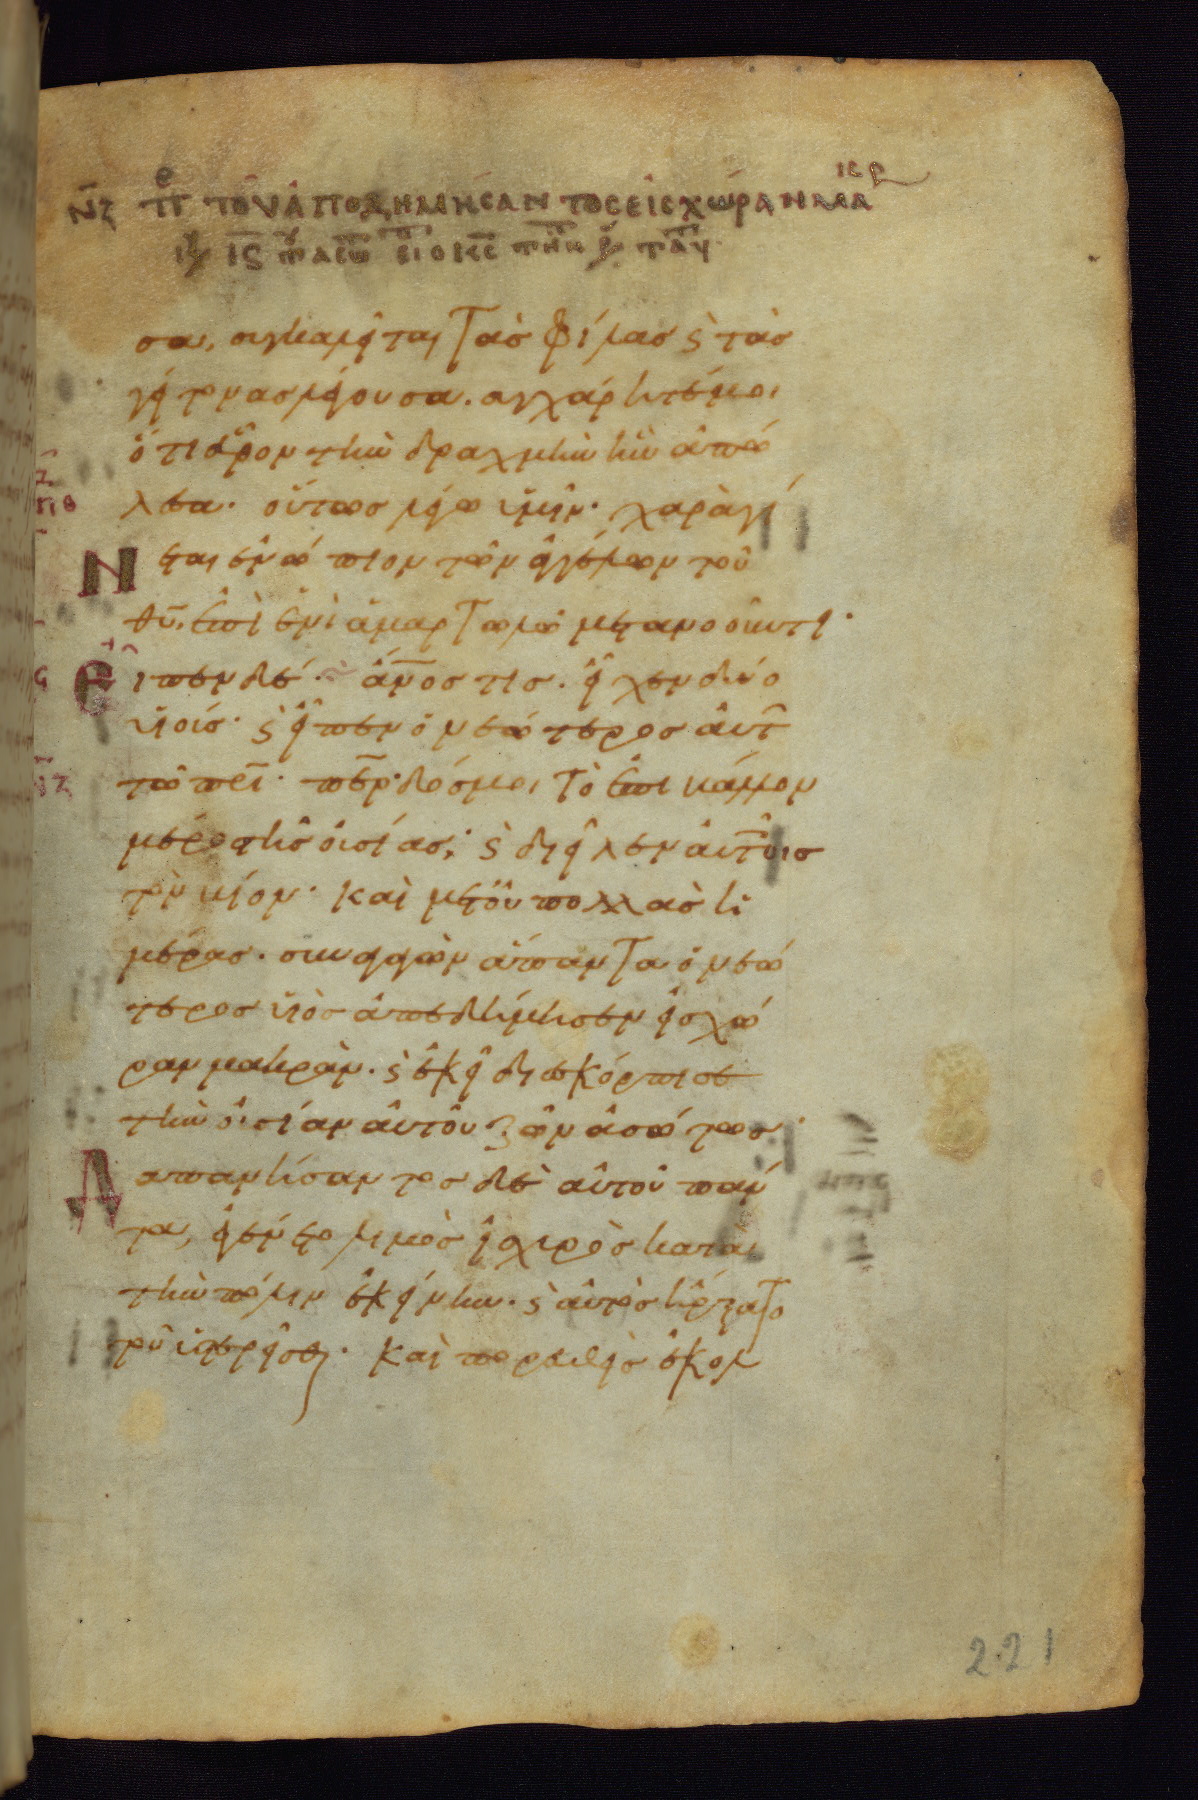 ΝΖ ΠΕ ΤΟΥ ἈΠΟΔΗΜΗΣΑΝΤΟΣ ΕἸΣ ΧΩΡΑΝ ΜΑ
ΚΡ
σα, συγκαλεῖται τὰσ φίλασ ϛ τὰσ
γείτονασ λέγουσα. συγχάρητέ μοι
ὅτι εὗρον τὴν δραχμὴν ἣν ἀπώ
λεσα. οὕτωσ λέγω ὑμῖν. χαρὰ γί
νεται ἐνώπιον τῶν ἀγγέλων τοῦ
θῦ. ἐπὶ ἑνὶ ἁμαρτωλῷ μετανοοῦντι.
Εἶπεν δέ. ἄνος τισ. εἶχεν δύο
υἱούσ. ϛ εἶπεν ὁ νεώτεροσ αὐτ
τῷ πρι. περ. δόσ μοι τὸ ἐπιβάλλον
μέροσ τῆσ οὐσίασ. ϛ διεῖλεν αὐτοῖσ
τὸν βίον. καὶ μετ οὐ πολλὰσ ἡ
μέρασ. συναγαγὼν ἅπαντα ὁ νεώ
τεροσ υἱὸσ ἀπεδήμησεν εἰσ χώ
ραν μακράν. ϛ ἐκεῖ διεσκόρπισε
τὴν οὐσίαν αὐτοῦ ζῶν ἀσώτωσ.
Δαπανήσαντοσ δὲ αὐτοῦ πάν
τα, ἐγένετο λιμὸσ ἰσχυρὸσ κατὰ
τὴν πόλιν ἐκείνην. ϛ αὐτὸσ ἤρξατο
τοῦ ὑστερεῖσθαι. καὶ πορευθεὶσ ἐκολ
221